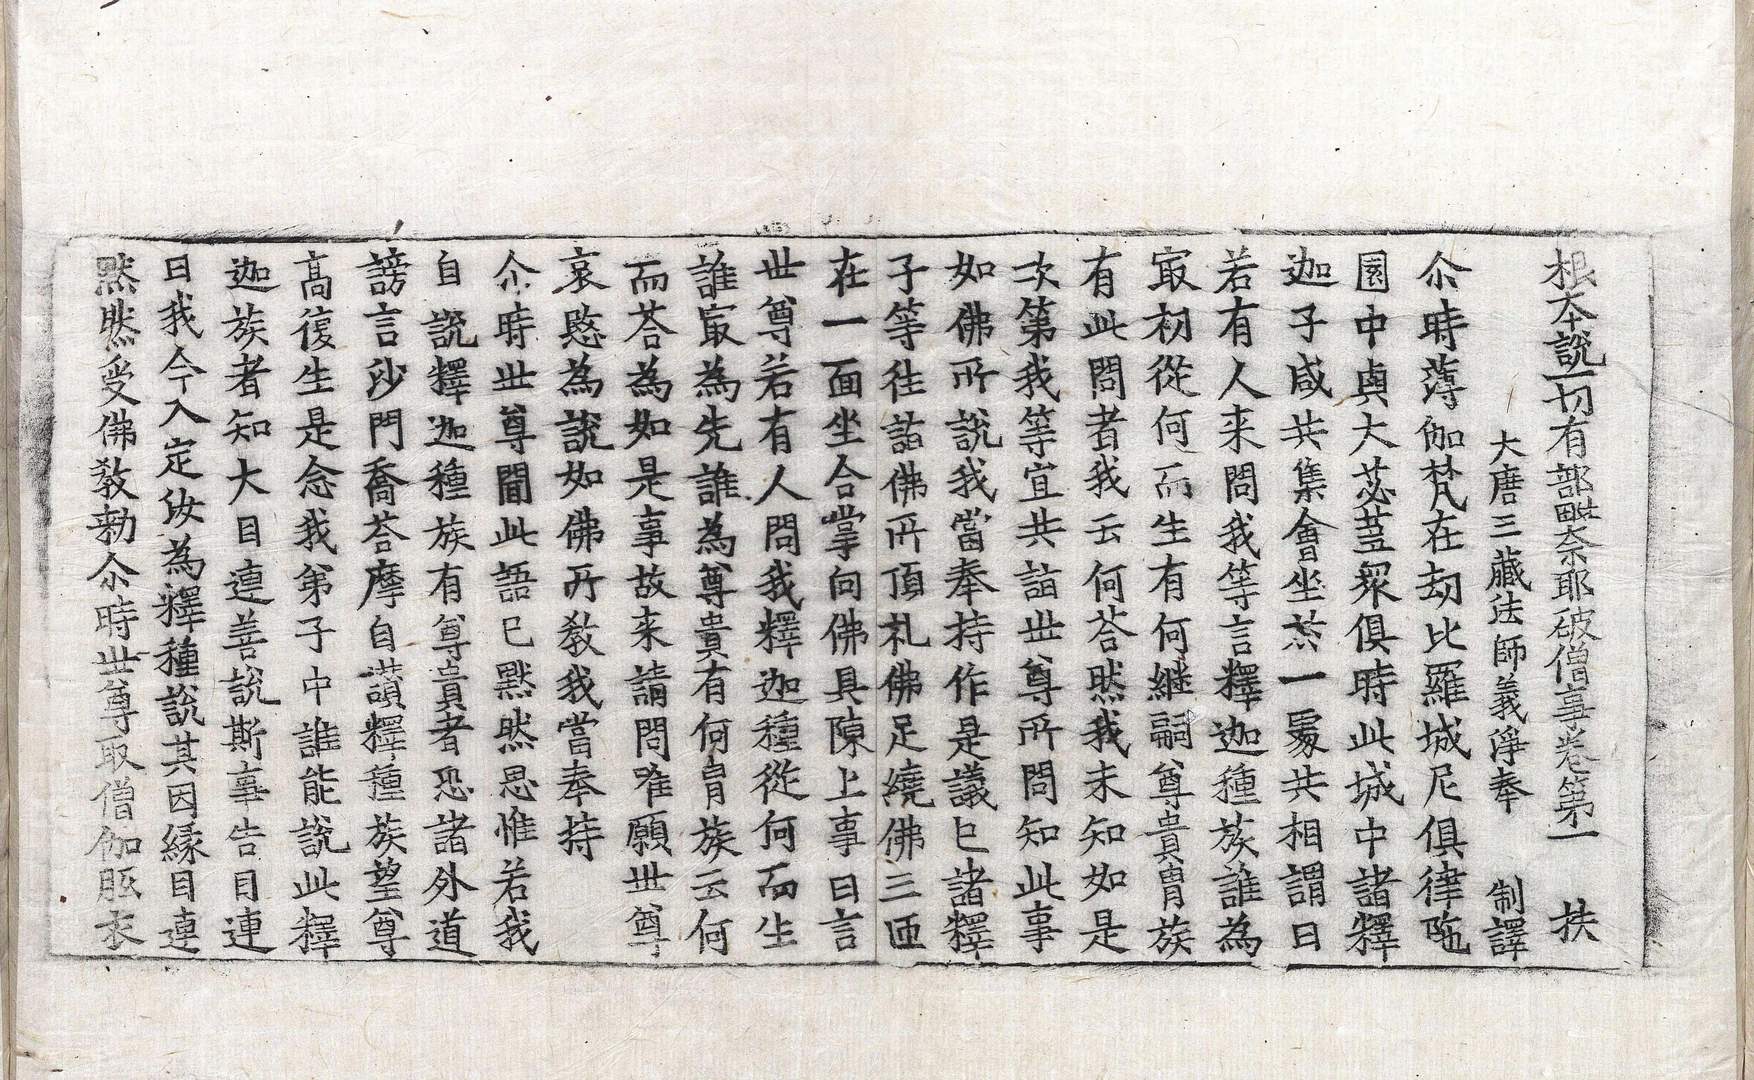 根本說一切有部毗奈耶破僧事卷第一　扶
大唐三藏法師義淨奉　制譯
尒時薄伽梵在劫比羅城尼俱律陁
園中與大苾蒭衆俱時此城中諸釋
迦子咸共集會坐於一處共相謂曰
若有人来問我等言釋迦種族誰為
㝡初從何而生有何継嗣尊貴胄族
有此問者我云何荅然我未知如是
次第我等宜共詣世尊所問知此事
如佛所說我當奉持作是議已諸釋
子等往詣佛所頂礼佛足繞佛三匝
在一面坐合掌向佛具陳上事曰言
世尊若有人問我釋迦種從何而生
誰㝡為先誰為尊貴有何胄族云何
而荅為如是事故来請問唯願世尊
哀愍為說如佛所教我當奉持
尒時世尊聞此語已默然思惟若我
自說釋迦種族有尊貴者恐諸外道
謗言沙門喬荅摩自讚釋種族望尊
高復生是念我弟子中誰能說此釋
迦族者知大目連善說斯事告目連
曰我今入定汝為釋種說其因緣目連
默然受佛教勑尒時世尊取僧伽胝衣